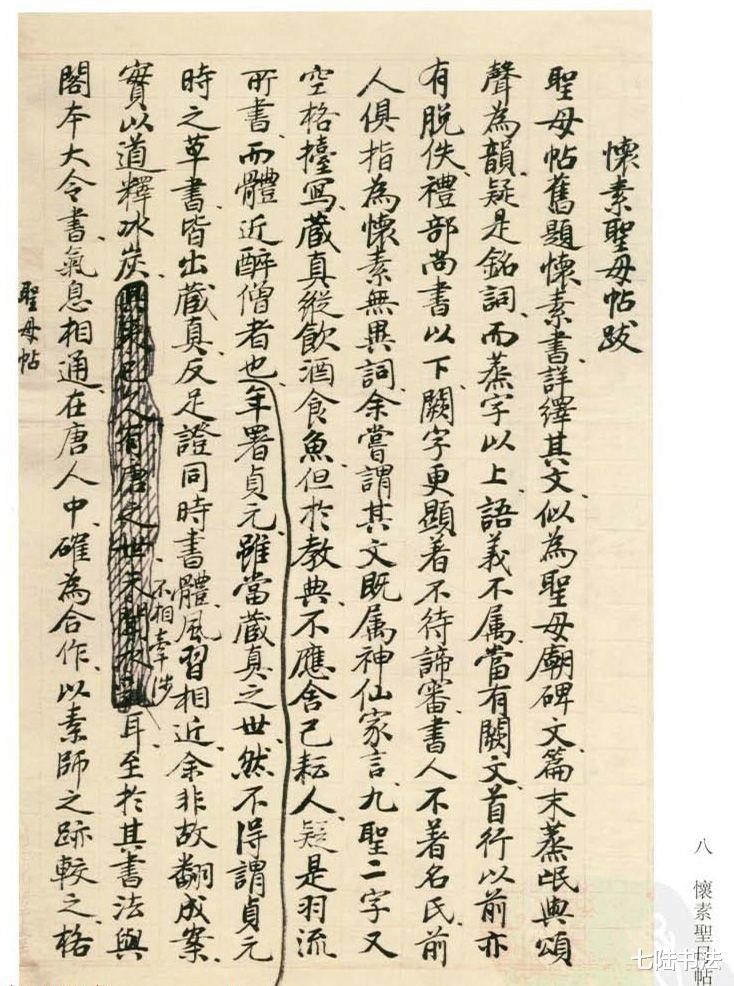 懷素聖母帖跋
聖母帖舊題懷素書詳繹其文似為聖母廟碑文篇末蒸岷與頌
聲為韻疑是銘詞而蒸字以上語義不属當有闕文首行以前亦
有脫佚禮部尚書以下闕字更顯著不待諦審書人不著名氏前
人俱指為懷素無異詞余嘗謂其文既属神仙家言九聖二字又
空格擡寫蔵真縱飲酒食魚但於教典不應舍己耘人疑是羽流
所書而體近醉僧者也年署貞元雖當蔵真之世然不得謂貞元
時之草書皆出蔵真反足證同時書體風習相近余非故翻成案
實以道釋冰炭不相牽涉耳至於其書法與
閣本大令書氣息相通在唐人中確為合作以素師之跡較之格
聖母帖
八 懷素聖母帖
七陆书法